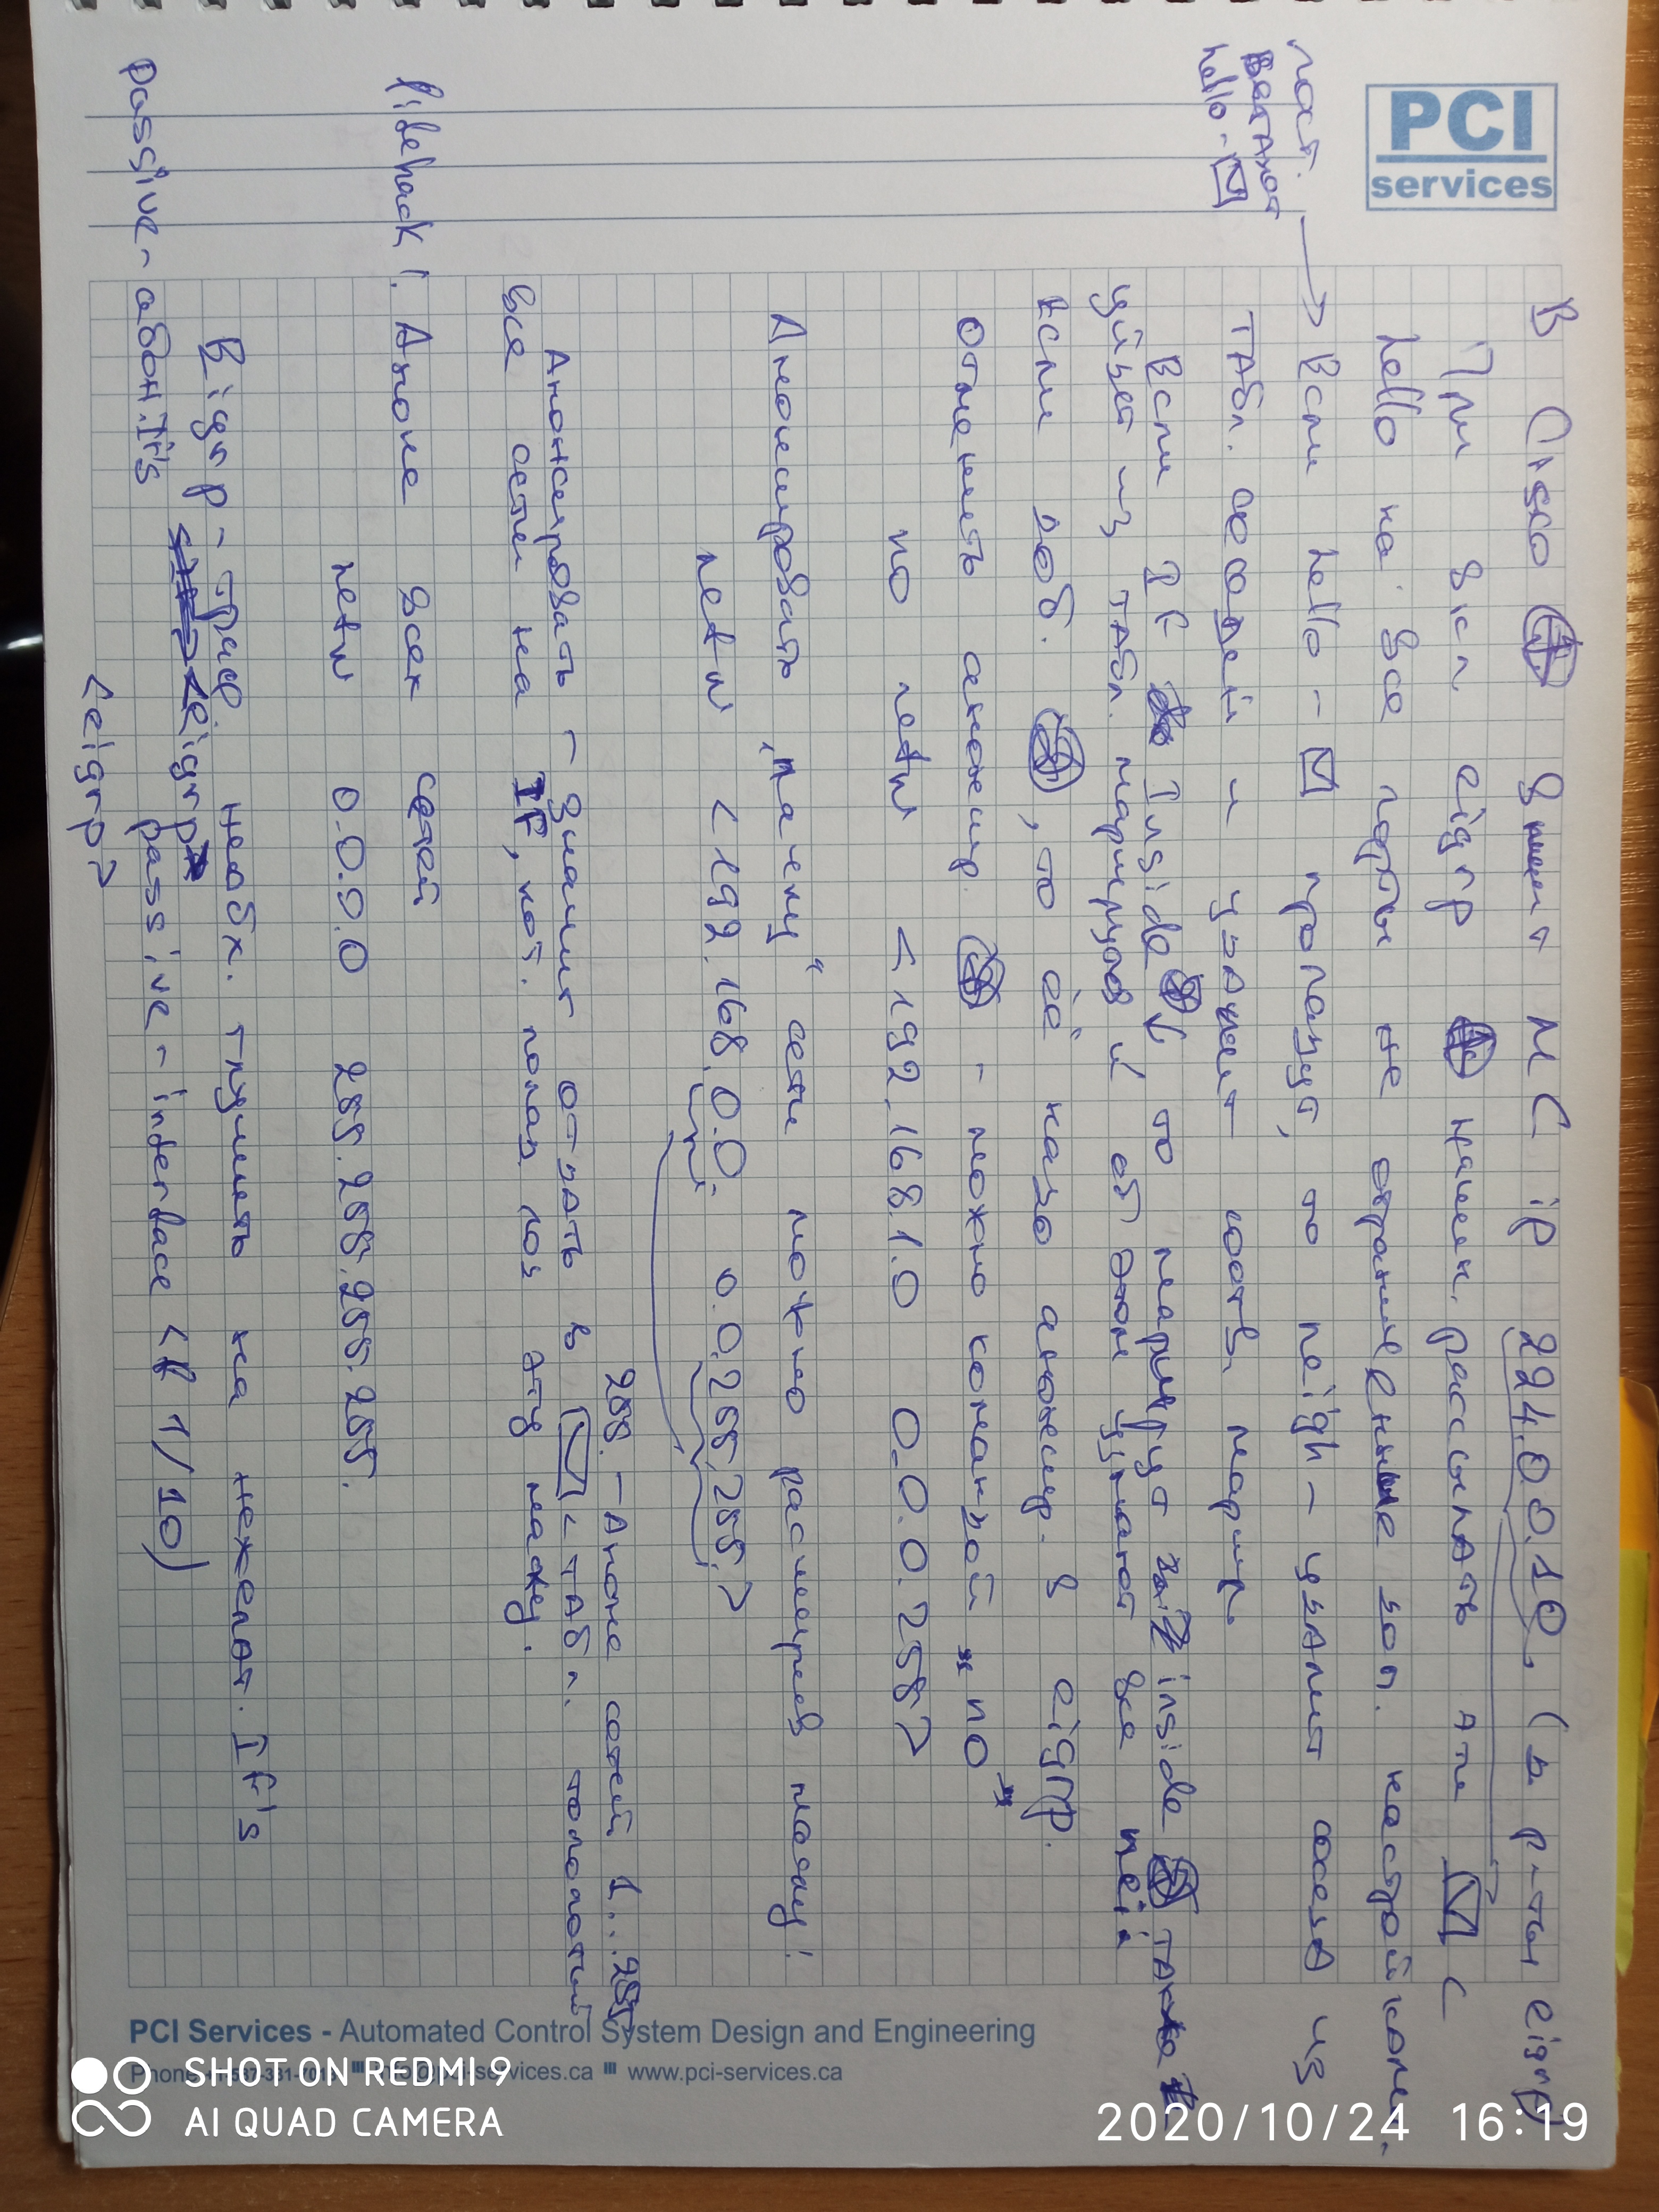 В Cisco вшит MC ip 224.0.0.10. (для р-ты eigrp)
При вкл. eigrp начин. рассылать эти с
hello на все порты не ограниченные доп. настройками.
Если hello - пропадут, то neigh - удалит соседа из
пост.
летают
hello -
табл. соседей и удалит соотв. маршр.
Если IF Inside ↓, то маршрут inside также
уйдет из табл. маршрутов и об этом узнают все nei
Если доб. , то её надо анонсир. в eigrp.
Отменить анонсир. - можно командой „no"
no netw <192.168.1.0 0.0.0.255>
Анонсировать „пачку" сети можно расширив маску!
netw <192.168.0.0. 0.0.255.255.>
255. - Анонс сетей 1...255
Анонсировать - значит отдать в с табл. топологий
все сети на IF, кот. попад под эту маску.
lifehack! Анонс всех сетей
netw 0.0.0.0 255.255.255.255.
Eigrp - траф. необх. глушить на нежелат. IF's
<eigrp>
passive - абон. IF's passive-interface <f 1/10)
<eigrp>
PCI
services
PCI Services - Automated Control System Design and Engineering
www.pci-services.ca
2020/10/24 16:19
SHOT ON REDMI 9
AI QUAD CAMERA